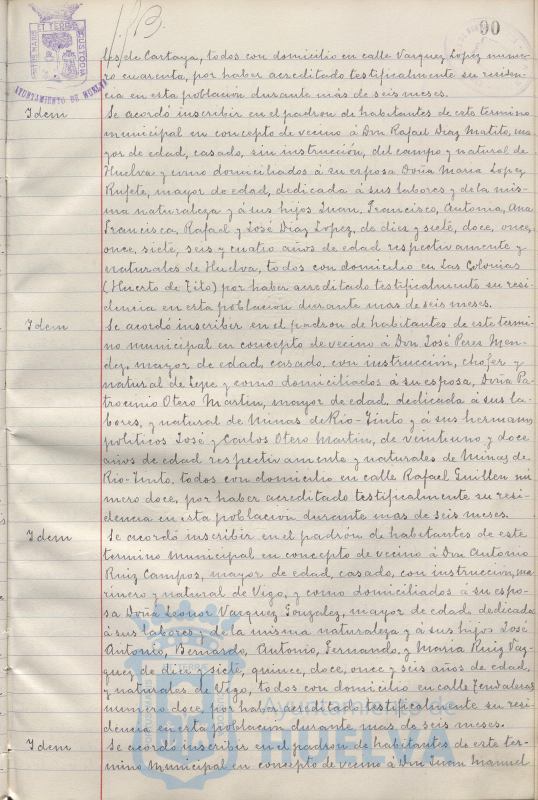 90
AYUNTAMIENTO DE HUELVA
les de Cartaya, todos con domicilio en calle Vazquez Lopez nume-
ro cuarenta, por haber acreditado testificalmente su residen-
cia en esta población durante más de seis meses.
Idem
Se acordó inscribir en el padron de habitantes de este termino
municipal en concepto de vecino á Don Rafael Diaz Matito, ma-
yor de edad, casado, sin instrucción, del campo y natural de
Huelva y como domiciliados á su esposa Doña Maria Lopez
Rufete, mayor de edad, dedicada á sus labores y de la mis-
ma naturaleza y á sus hijos Juan, Francisco, Antonia, Ana
Francisca, Rafael y José Diaz Lopez, de diez y siete, doce, once,
once, siete, seis y cuatro años de edad respectivamente y
naturales de Huelva, todos con domicilio en Las Colonias
(Huerto de Tito) por haber acreditado testificalmente su resi-
dencia en esta población durante mas de seis meses.
Idem
Se acordó inscribir en el padron de habitantes de este termi-
no municipal en concepto de vecino á Don José Perez Men-
dez, mayor de edad, casado, con instrucción, chofer y
natural de Lepe y como domiciliados á su esposa, Doña Pa-
trocinio Otero Martin, mayor de edad, dedicada á sus la-
bores, y natural de Minas de Rio-Tinto y á sus hermanos
politicos José y Carlos Otero Martin, de veintiuno y doce
años de edad respectivamente y naturales de Minas de
Rio-Tinto, todos con domicilio en calle Rafael Guillen nú-
mero doce, por haber acreditado testificalmente su resi-
dencia en esta población durante mas de seis meses.
Idem
Se acordó inscribir en el padrón de habitantes de este
termino municipal en concepto de vecino á Don Antonio
Ruiz Campos, mayor de edad, casado, con instrucción, ma-
rinero y natural de Vigo, y como domiciliados á su espo-
sa Doña Leonor Vazquez Gonzalez, mayor de edad, dedicada
á sus labores y de la misma naturaleza y á sus hijos José
Antonio, Bernardo, Antonio, Fernando, y Maria Ruiz Vaz-
quez de diez y siete, quince, doce, once y seis años de edad,
y naturales de Vigo, todos con domicilio en calle Tendaleras
numero doce, por haber acreditado testificalmente su resi-
dencia en esta población durante mas de seis meses.
Idem
Se acordó inscribir en el padron de habitantes de este ter-
mino Municipal en concepto de vecino á Don Juan Manuel
Ayuntamiento
HUELVA